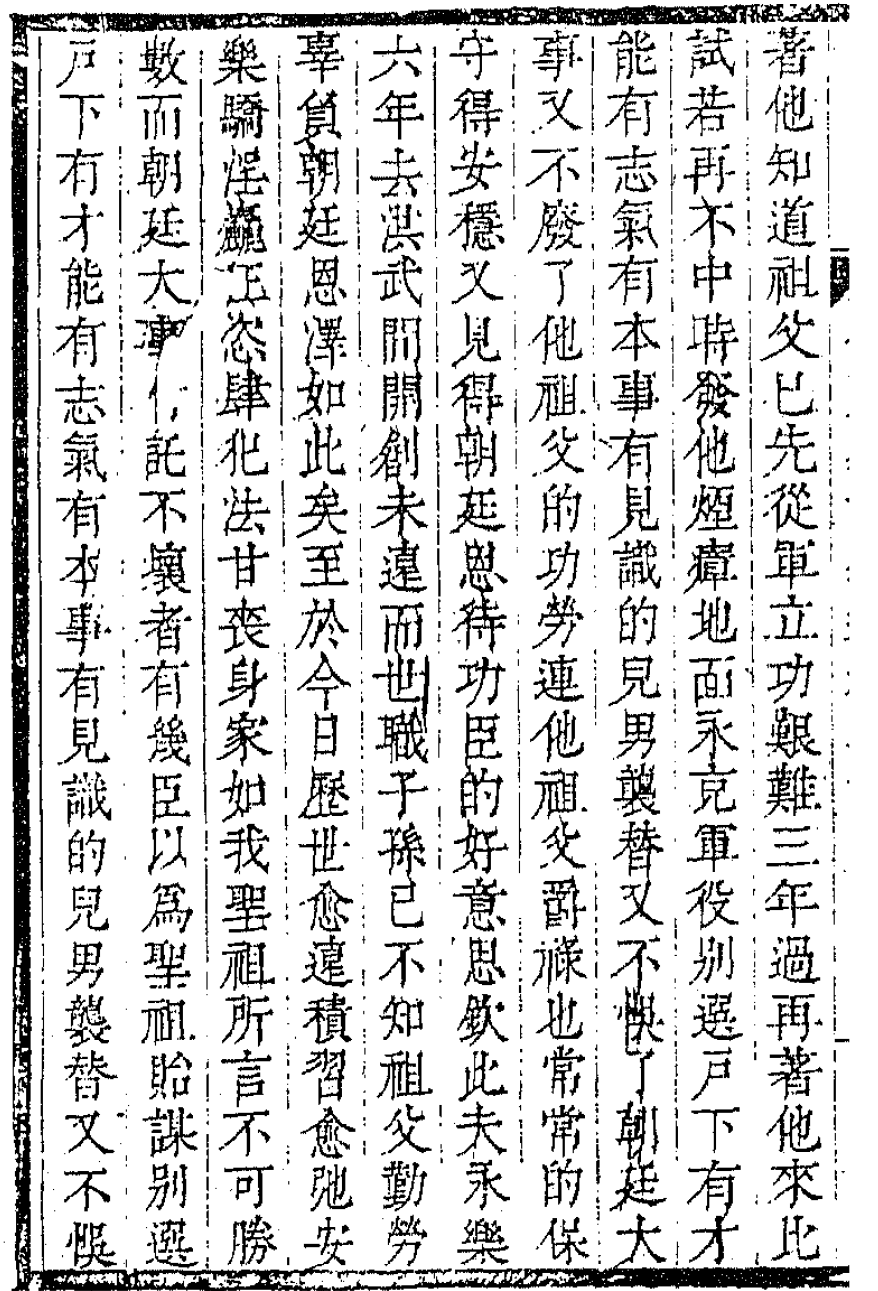 著他知道祖父已先從軍立功艱難三年過再著他來比
試若再不中時發他煙瘴地面永充軍役别選戸下有才
能有志氣有本事有見識的兒男襲替又不悞了朝廷大
事又不廢了他祖父的功勞連他祖父爵祿也常常的保
守得安穩又見得朝廷恩待功臣的好意思欽此夫永樂
六年去洪武間開創未遠而世職子孫已不知祖父勤勞
辜負朝廷恩澤如此矣至於今日歷世愈遠積習愈弛安
樂驕淫恣肆犯法甘喪身家如我聖祖所言不可勝
數而朝廷大事託不壞者有幾臣以爲聖祖貽謀别選
戸下有才能有志氣有本事有見識的兒男襲替又不悞